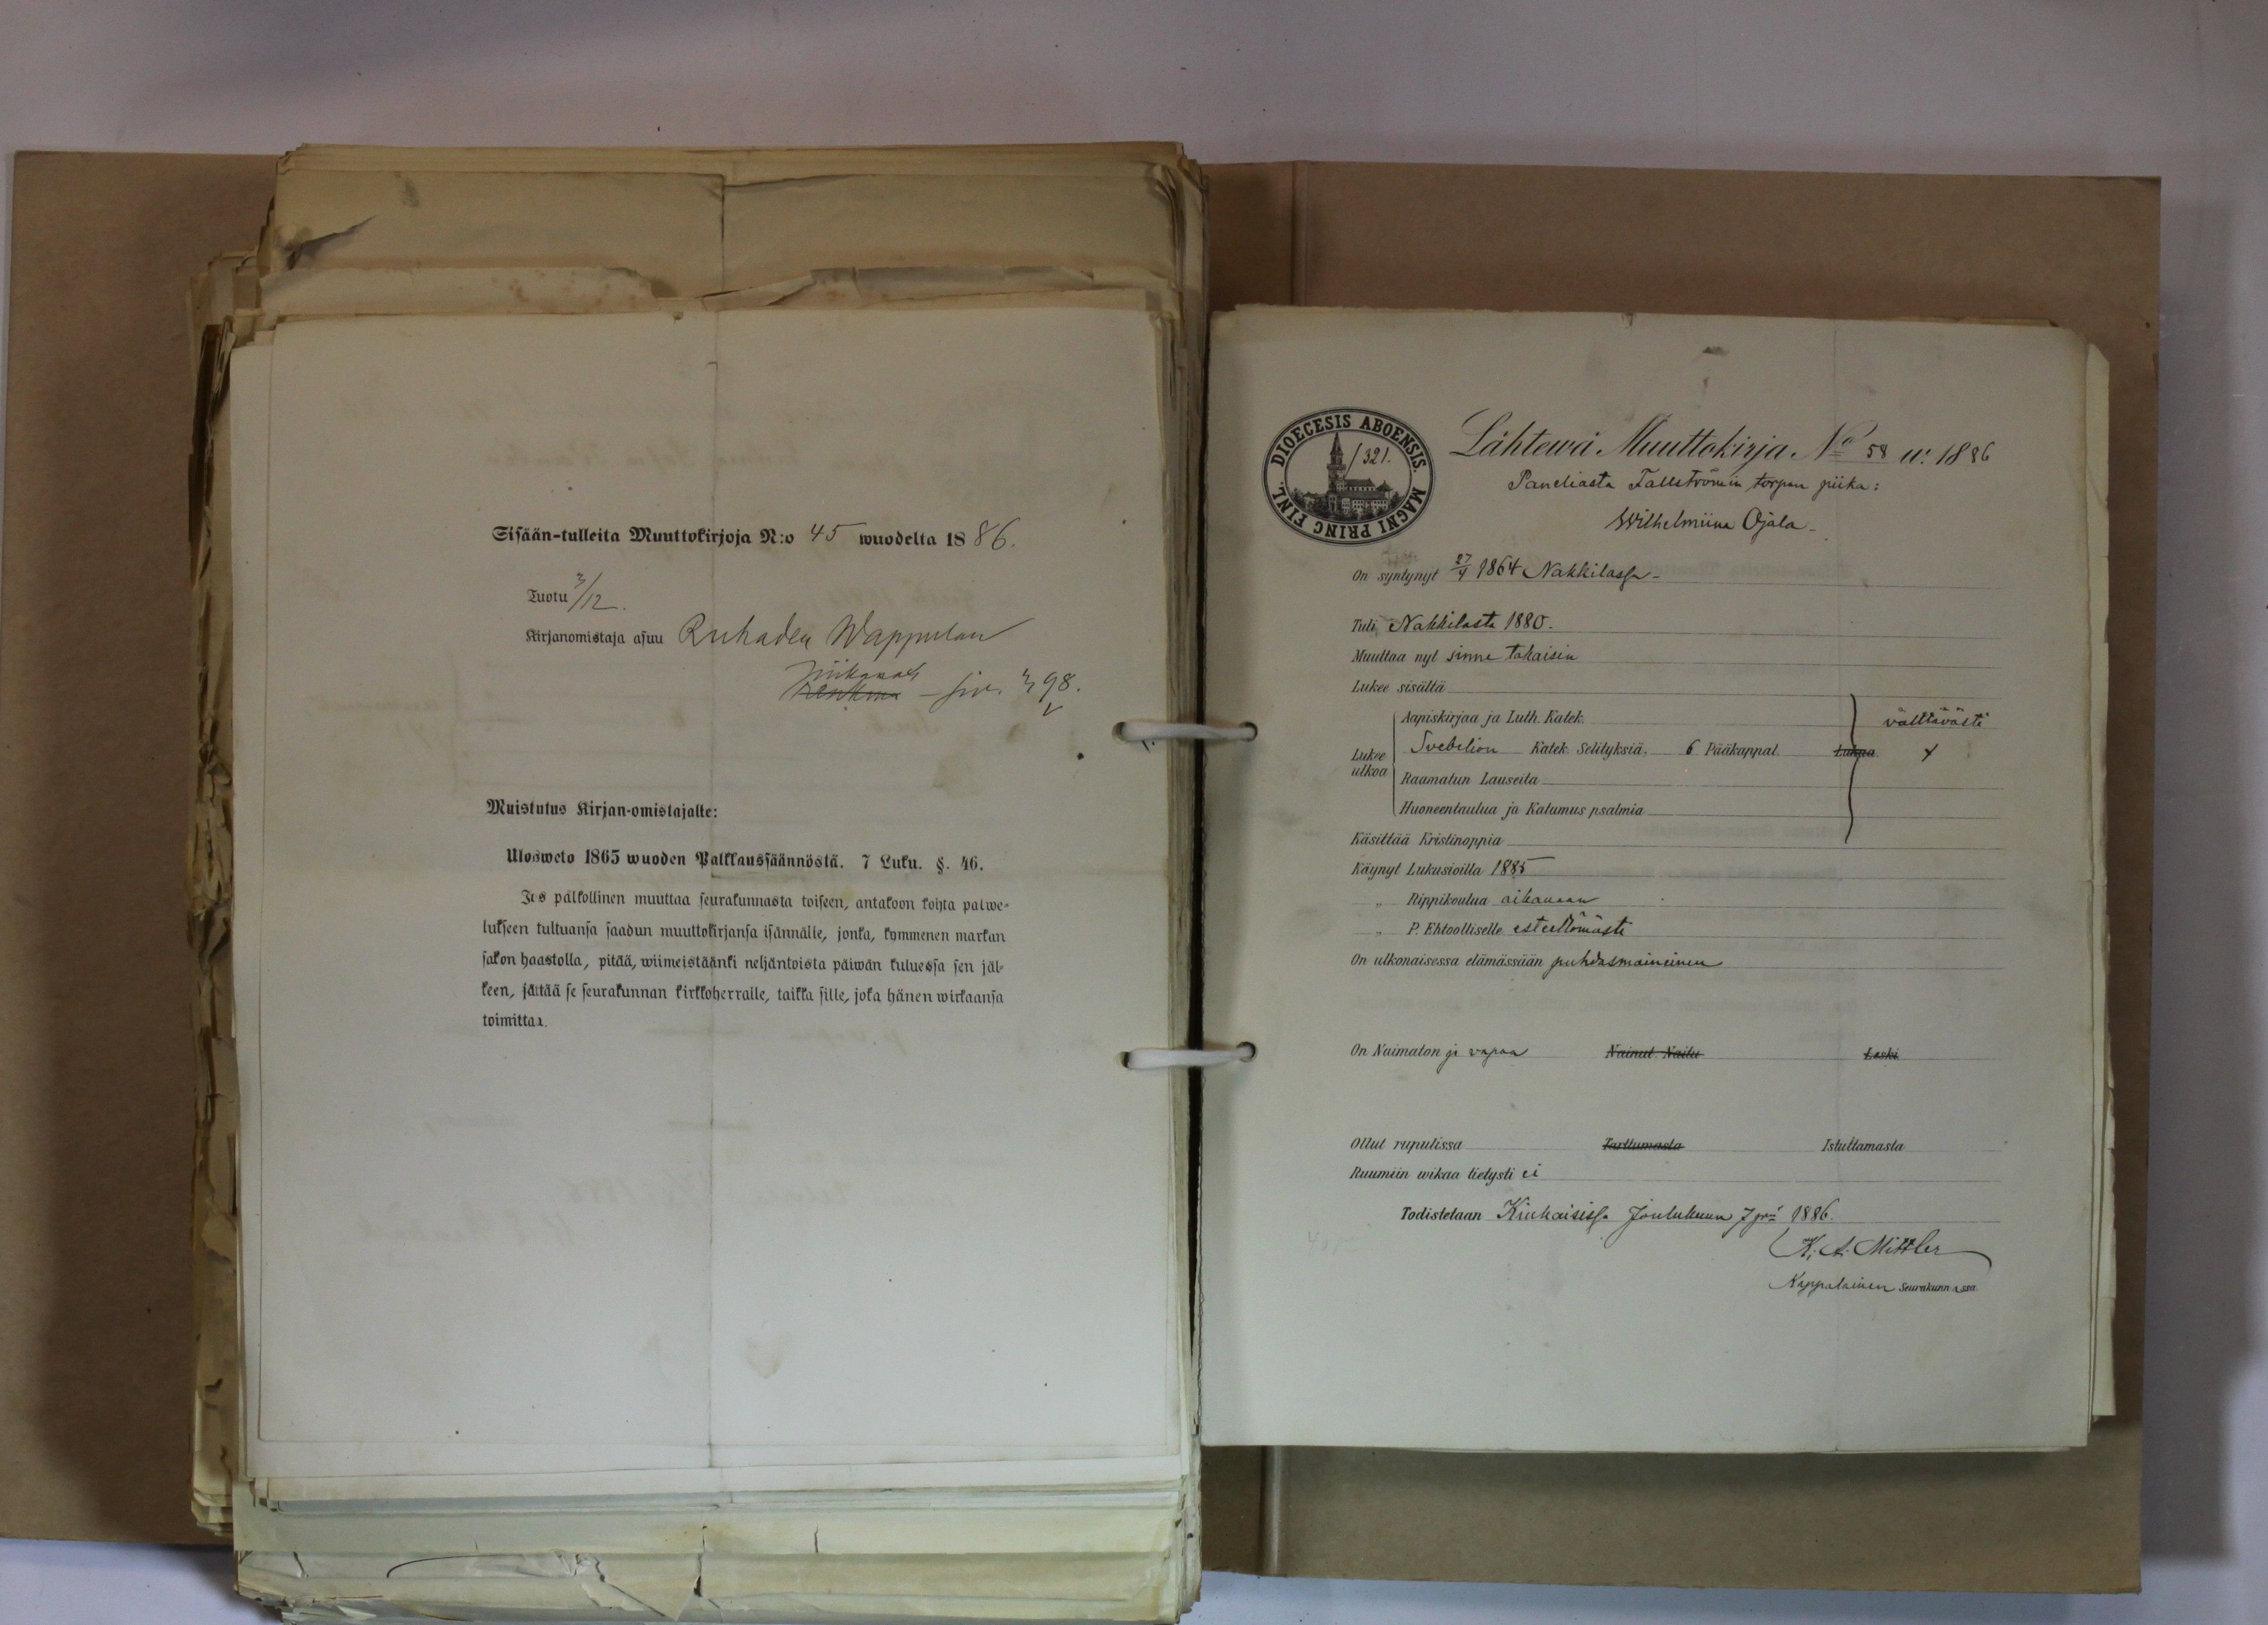 Sisään-tulleita Muuttokirjoja N:o 45 wuodelta 1886.
Tuotu 3/12.
Kirjanomistaja asuu Ruhaden Wappulan
siv. 398.
Muistutus Kirjan-omistajalle:
Ulosweto 1865 wuoden Palkkaussäännöstä. 7 Luku. §. 46.
Jos palkollinen muuttaa seurakunnasta toiseen, antakoon kohta palwe-
lukseen tultuansa saadun muuttokirjansa isännälle, jonka, kymmenen markan
sakon haastolla, pitää, wiimeistäänki neljäntoista päiwän kuluessa sen jäl-
keen, jättää se seurakunnan kirkkoherralle, taikka sille, joka hänen wirkaansa
toimittaa.
DIOECESIS ABOENSIS. MAGNI PRINC FINL.
/321.
Lähtewä Muuttokirja No 58 u: 1886
Paneliasta Fallströmin torpan piika:
Wilhelmiina Ojala
On syntynyt 27/4 1864 Nakkilassa
Tuli Nakkilasta 1880.
Muuttaa nyt sinne takaisin
Lukee sisältä
Lukee ulkoa
Aapiskirjaa ja Luth. Katek. välttävästi
Svebelion Katek. Selityksiä. 6 Pääkappal. Lukua
Raamatun Lauseita
Huoneentaulua ja Katumus psalmia
Käsittää Kristinoppia
Käynyt Lukusioilla 1885
„ Rippikoulua aikanaan
„ P. Ehtoolliselle esteettömästi
On ulkonaisessa elämässään puhdasmaineinen
On Naimaton ja vapaa Nainut Nailu Leski
Ollut rupulissa Tarttumasta Istuttamasta
Ruumiin wikaa tietysti ei
Todistetaan Kiukaisissa Joulukuun 7 pnä 1886.
K. A. Mittler
Kappalainen Seurakunnassa